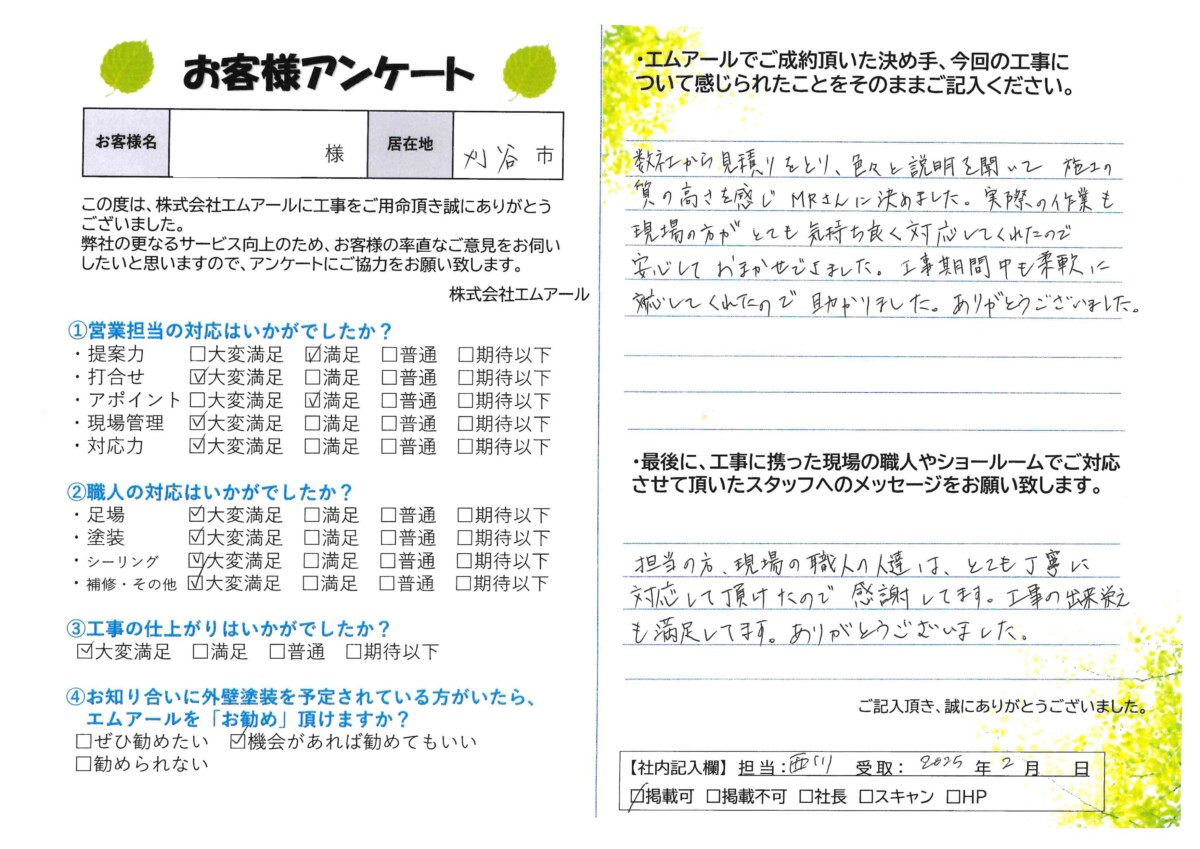 お客様アンケート
お客様名 様 居在地 刈谷 市
この度は、株式会社エムアールに工事をご用命頂き誠にありがとう
ございました。
弊社の更なるサービス向上のため、お客様の率直なご意見をお伺い
したいと思いますので、アンケートにご協力をお願い致します。
株式会社エムアール
①営業担当の対応はいかがでしたか？
・提案力 □大変満足 ☑満足 □普通 □期待以下
・打合せ ☑大変満足 □満足 □普通 □期待以下
・アポイント □大変満足 ☑満足 □普通 □期待以下
・現場管理 ☑大変満足 □満足 □普通 □期待以下
・対応力 ☑大変満足 □満足 □普通 □期待以下
②職人の対応はいかがでしたか？
・足場 ☑大変満足 □満足 □普通 □期待以下
・塗装 ☑大変満足 □満足 □普通 □期待以下
・シーリング ☑大変満足 □満足 □普通 □期待以下
・補修・その他 ☑大変満足 □満足 □普通 □期待以下
③工事の仕上がりはいかがでしたか？
☑大変満足 □満足 □普通 □期待以下
④お知り合いに外壁塗装を予定されている方がいたら、
エムアールを「お勧め」頂けますか？
□ぜひ勧めたい ☑機会があれば勧めてもいい
□勧められない
・エムアールでご成約頂いた決め手、今回の工事に
ついて感じられたことをそのままご記入ください。
数社から見積りをとり、色々と説明を聞いて 施工の
質の高さを感じ MRさんに決めました。実際の作業も
現場の方が とても 気持ち良く対応してくれたので
安心して おまかせできました。工事期間中も柔軟に
対応してくれたので 助かりました。ありがとうございました。
・最後に、工事に携った現場の職人やショールームでご対応
させて頂いたスタッフへのメッセージをお願い致します。
担当の方、現場の職人の人達は、とても丁寧に
対応して頂けたので 感謝してます。工事の出来栄え
も満足してます。ありがとうございました。
ご記入頂き、誠にありがとうございました。
【社内記入欄】 担当：西川 受取： 2025 年 2 月 日
☑掲載可 □掲載不可 □社長 □スキャン □HP